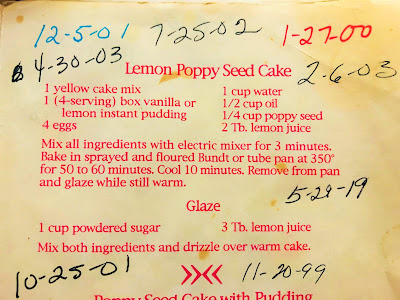 12-5-01 7-25-02 1-27-00
4-30-03
Lemon Poppy Seed Cake 2-6-03
1 yellow cake mix
1 (4-serving) box vanilla or
lemon instant pudding
4 eggs
1 cup water
1/2 cup oil
1/4 cup poppy seed
2 Tb. lemon juice
Mix all ingredients with electric mixer for 3 minutes.
Bake in sprayed and floured Bundt or tube pan at 350°
for 50 to 60 minutes. Cool 10 minutes. Remove from pan
and glaze while still warm.
5-29-19
Glaze
1 cup powdered sugar 3 Tb. lemon juice
Mix both ingredients and drizzle over warm cake.
10-25-01 11-20-99
Poppy Seed Cake with Pudding